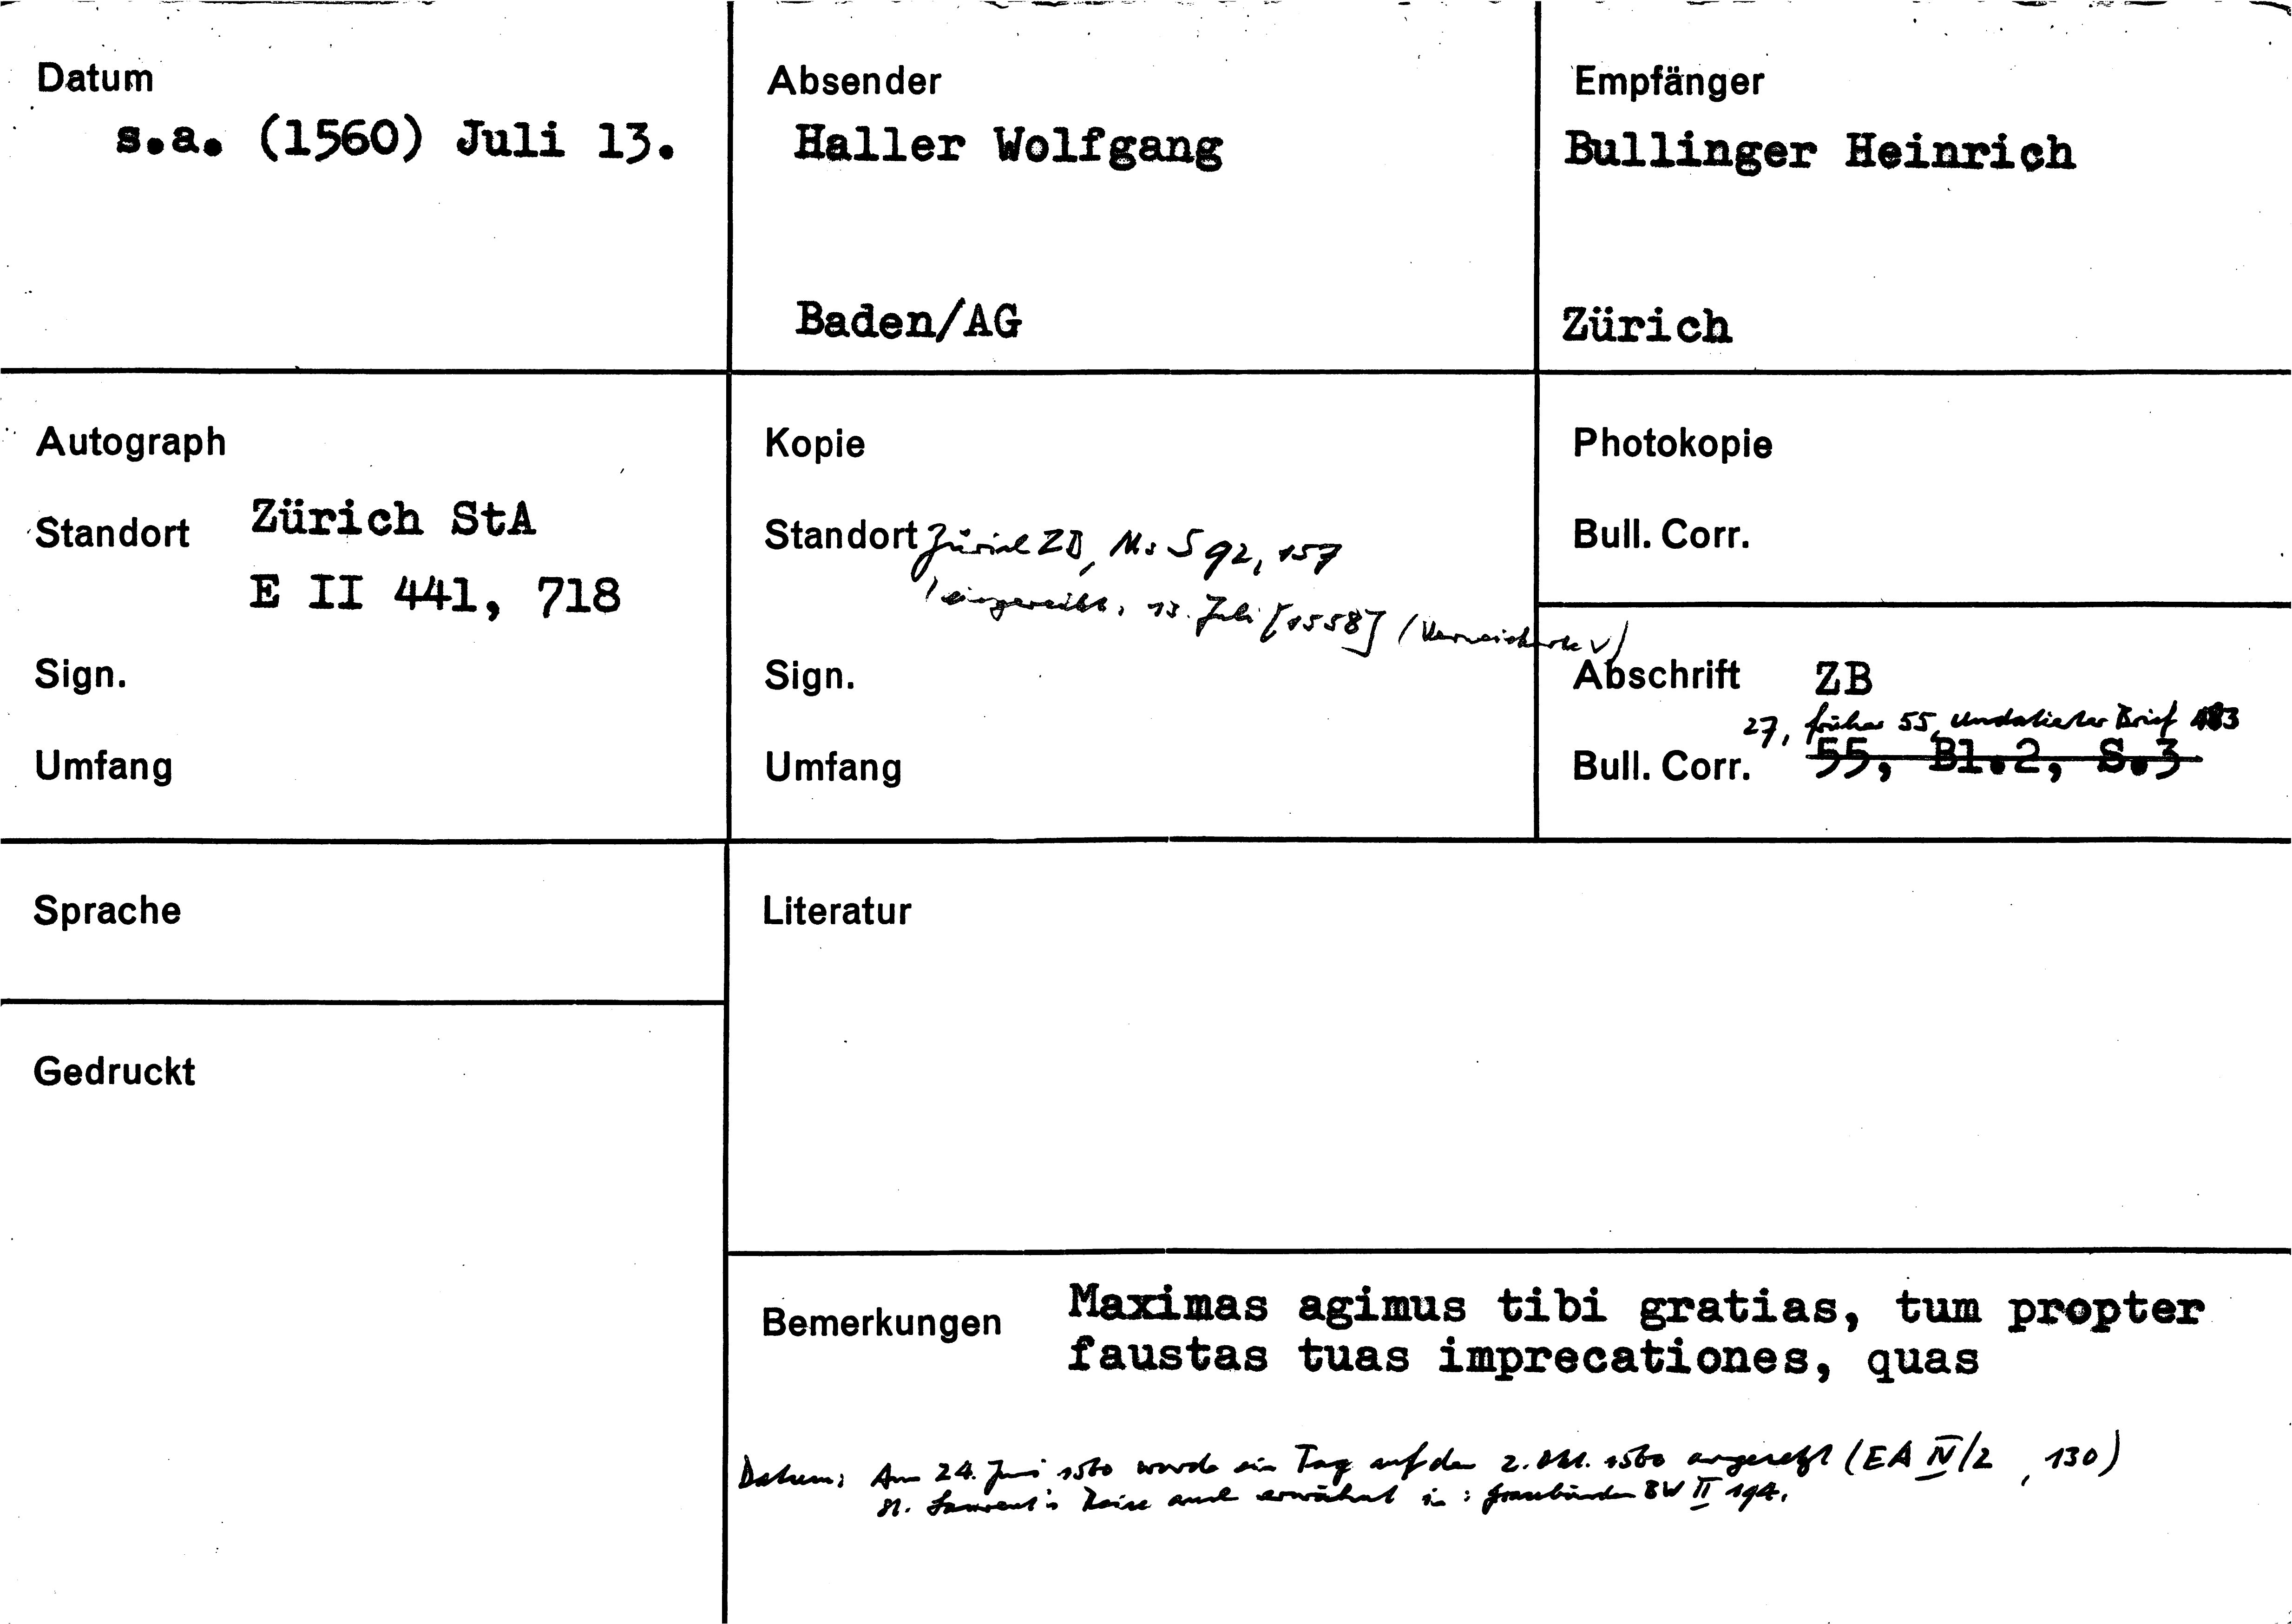 Datum
s.a. (1560) Juli 13.
Absender
Haller Wolfgang
Baden/AG
Empfänger
Bullinger Heinrich
Zürich
Autograph
Standort Zürich StA
E II 441, 718
Sign.
Umfang
Kopie
Standort Zürich ZB, Ms S 92, 157
(eingereiht: 13. Juli [1558] /
Sign.
Umfang
Photokopie
Bull. Corr.
Abschrift ZB
27, früher 55, undatierter Brief
Bull. Corr. 55, Bl.2, S.3
Sprache
Gedruckt
Literatur
Bemerkungen Maximas agimus tibi gratias, tum propter
faustas tuas imprecationes, quas
Datum: Am 24. Juni 1560 wurde ein Tag auf den 2. Okt. 1560 angesetzt (EA IV/2, 130)
St. Laurent's Reise auch erwähnt in: Graubünden BW II 194.